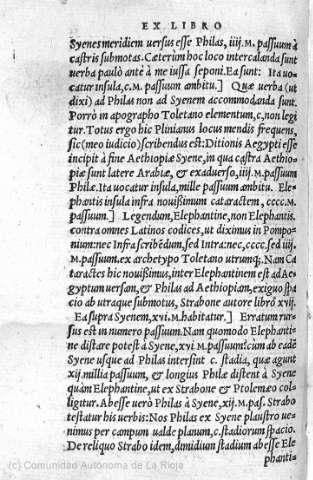 EX LIBRO
Syenes meridiem uersus esse Philas, iiij. M. passuum à
castris submotas. Cæterùm hoc loco intercalanda sunt
uerba paulò antè à me iussa seponi. Ea sunt: Ita uo-
catur insula, c. M. passuum ambitu.] Quæ uerba (ut
dixi) ad Philas non ad Syenem accommodanda sunt.
Porrò in apographo Toletano elementum, c, non legi
tur. Totus ergo hic Plinianus locus mendis frequens,
sic (meo iudicio) scribendus est: Ditionis Aegypti esse
incipit à fine Aethiopiæ Syene, in qua castra Aethio-
piæ sunt latere Arabiæ, & exaduerso, iiij. M. passuum
Philæ. Ita uocatur insula, mille passuum ambitu. Ele-
phantis insula infra nouißimum cataractem, cccc. M.
passuum.] Legendum, Elephantine, non Elephantis.
contra omnes Latinos codices, ut diximus in Pompo-
nium: nec Infra scribēdum, sed Intra: nec, cccc. sed iiij.
M. passuum. ex archetypo Toletano utrumq;. Nam Ca
taractes hic nouißimus, inter Elephantinem est ad Ae-
gyptum uersam, & Philas ad Aethiopiam, exiguo spa
cio ab utraque submotus, Strabone autore libro xvij.
Ea supra Syenem, xvi. M. habitatur.] Erratum rur-
sus est in numero passuum. Nam quomodo Elephanti-
ne distare potest à Syene, xvi M. passuum? cùm ab eadē
Syene usque ad Philas intersint c. stadia, quæ agunt
xij. millia passuum, & longius Philæ distent à Syene
quàm Elephantine, ut ex Strabone & Ptolemæo col-
ligitur. Abesse uerò Philas à Syene, xij. M. pas. Strabo
testatur his uerbis: Nos Philas ex Syene plaustro ue-
nimus per campum ualde planum, c. stadiorum spacio.
De reliquo Strabo idem, dimidium stadium abesse Ele
phanti-
(c) Comunidad Autónoma de La Rioja